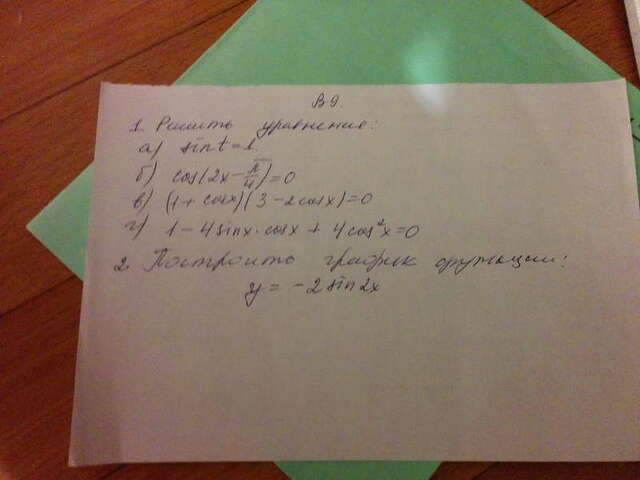 В 9.
1. Решить уравнение:
а) sin t = 1.
б) cos(2x − π/4) = 0
в) (1 + cos x)(3 − 2cos x) = 0
г) 1 − 4 sin x · cos x + 4 cos²x = 0
2. Построить график функции:
y = −2 sin 2x